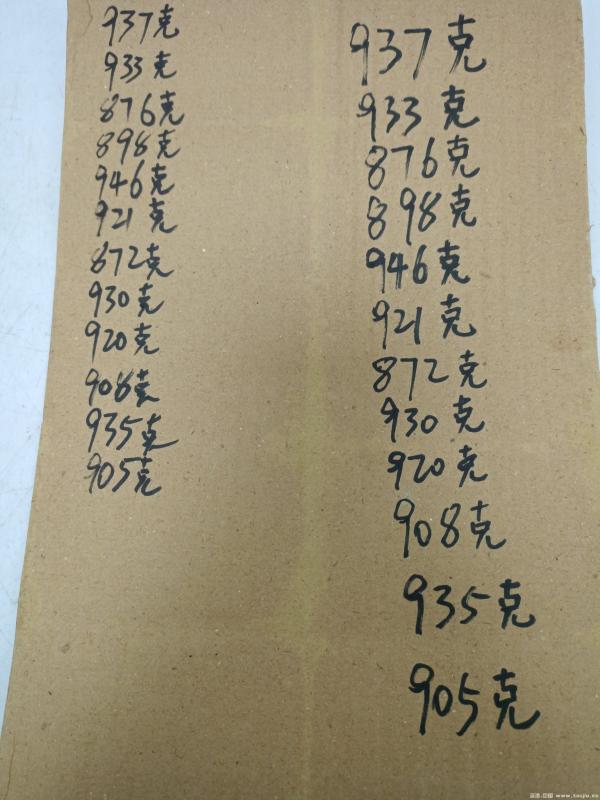 937克
933克
876克
898克
946克
921克
872克
930克
920克
908克
935克
905克
937克
933克
876克
898克
946克
921克
872克
930克
920克
908克
935克
905克